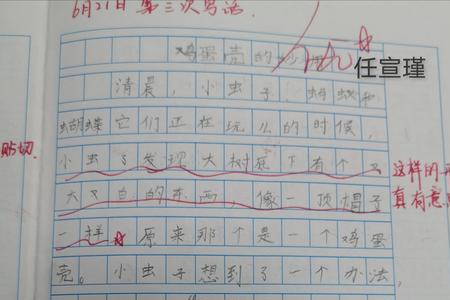 6月21日 第三次写话.
鸡蛋壳的
任宣瑾
清晨，小虫子、蚂蚁和
蝴蝶它们正在玩么的时候，
小虫子发现大树底下有个又
贴切.
这样的
大又白的东西，像一顶帽子
真有意
一样。原来那个是一个鸡蛋
壳。小虫子想到了一个办法，